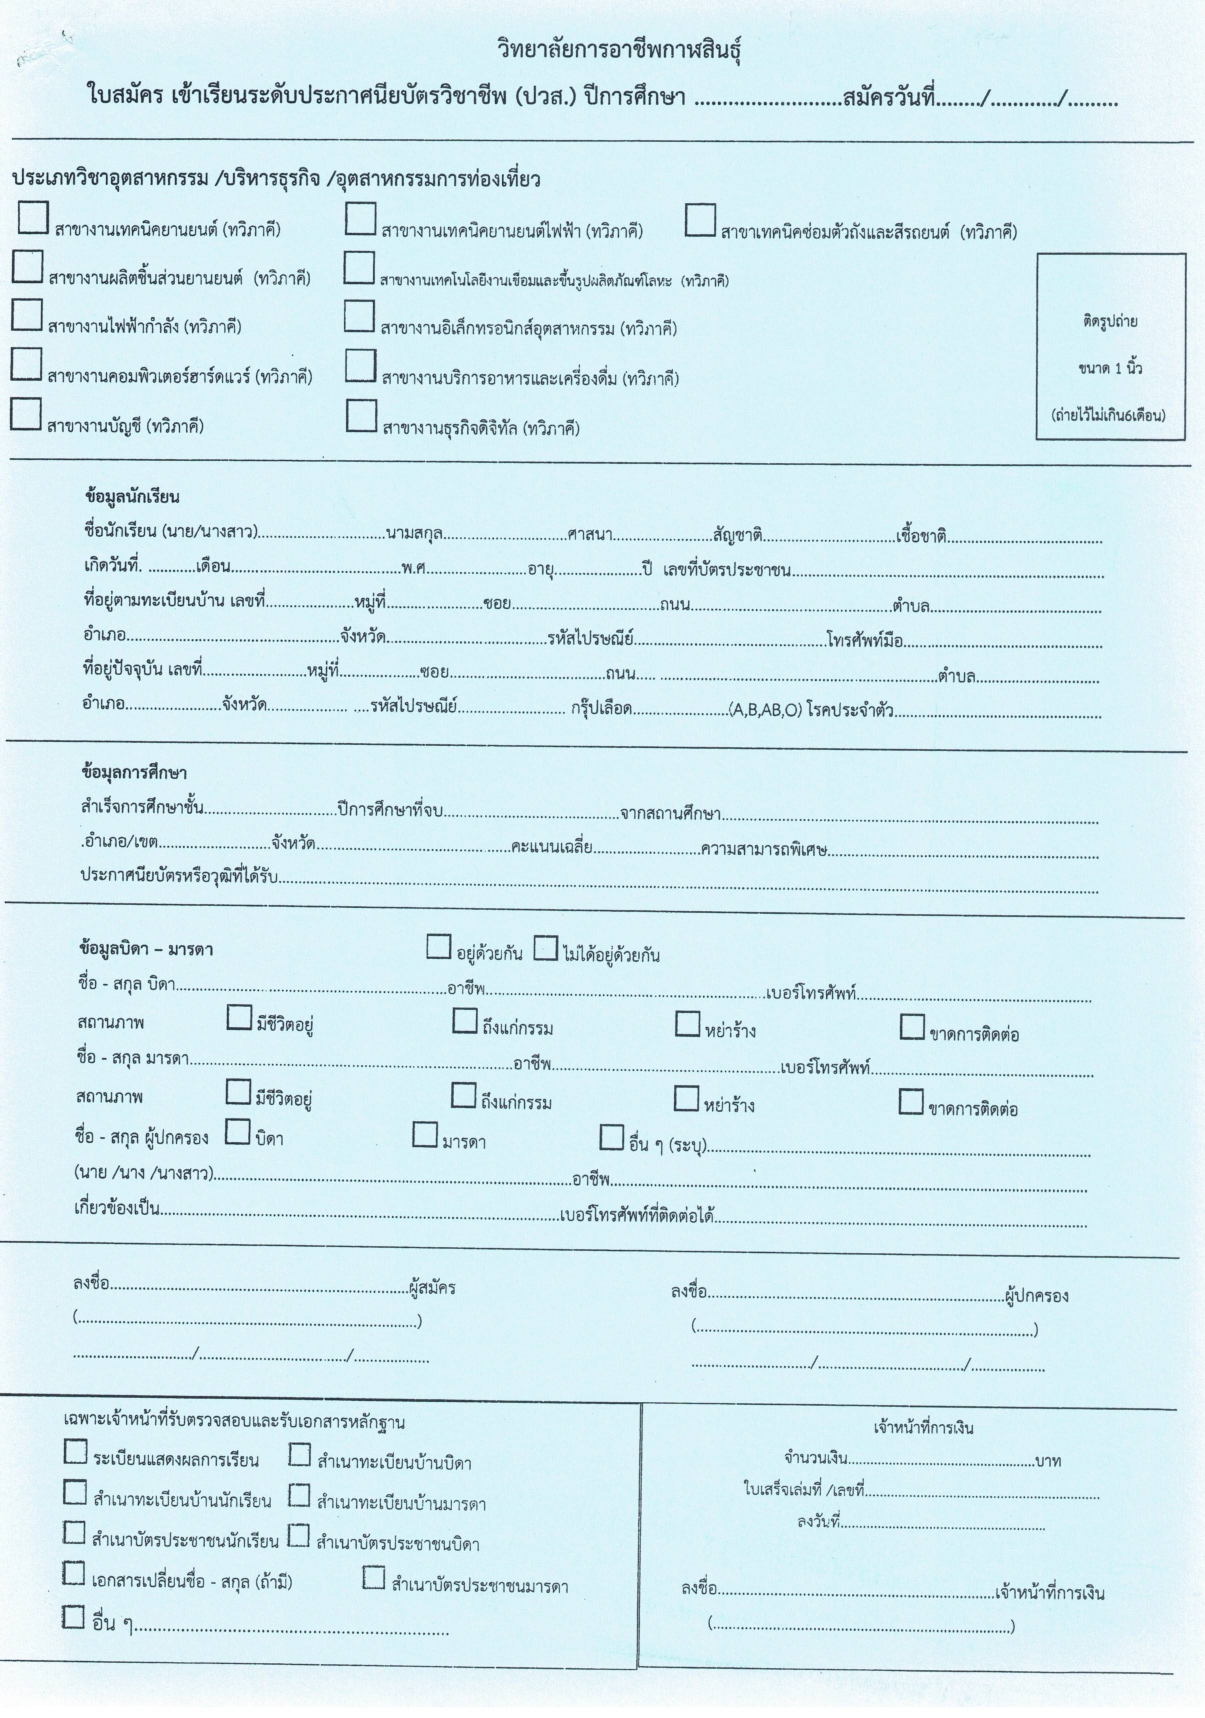 วิทยาลัยการอาชีพกาฬสินธุ์
ใบสมัคร เข้าเรียนระดับประกาศนียบัตรวิชาชีพ (ปวส.) ปีการศึกษา ..........................สมัครวันที่......../............/.........
ประเภทวิชาอุตสาหกรรม /บริหารธุรกิจ /อุตสาหกรรมการท่องเที่ยว
สาขางานเทคนิคยานยนต์ (ทวิภาคี) สาขางานเทคนิคยานยนต์ไฟฟ้า (ทวิภาคี) สาขาเทคนิคซ่อมตัวถังและสีรถยนต์ (ทวิภาคี)
สาขางานผลิตชิ้นส่วนยานยนต์ (ทวิภาคี) สาขางานเทคโนโลยีงานเชื่อมและขึ้นรูปผลิตภัณฑ์โลหะ (ทวิภาคี)
สาขางานไฟฟ้ากำลัง (ทวิภาคี) สาขางานอิเล็กทรอนิกส์อุตสาหกรรม (ทวิภาคี)
สาขางานคอมพิวเตอร์ฮาร์ดแวร์ (ทวิภาคี) สาขางานบริการอาหารและเครื่องดื่ม (ทวิภาคี)
สาขางานบัญชี (ทวิภาคี) สาขางานธุรกิจดิจิทัล (ทวิภาคี)
ติดรูปถ่าย
ขนาด 1 นิ้ว
(ถ่ายไว้ไม่เกิน6เดือน)
ข้อมูลนักเรียน
ชื่อนักเรียน (นาย/นางสาว)..............................นามสกุล..............................ศาสนา.........................สัญชาติ.................................เชื้อชาติ......................................
เกิดวันที่. ............เดือน..........................................พ.ศ.........................อายุ.....................ปี เลขที่บัตรประชาชน............................................................................
ที่อยู่ตามทะเบียนบ้าน เลขที่......................หมู่ที่........................ซอย....................................ถนน..................................................ตำบล..........................................
อำเภอ....................................................จังหวัด........................................รหัสไปรษณีย์................................................โทรศัพท์มือ.................................................
ที่อยู่ปัจจุบัน เลขที่..........................หมู่ที่....................ซอย.......................................ถนน..... ....................................................................ตำบล..............................
อำเภอ........................จังหวัด.................... ....รหัสไปรษณีย์.......................... กรุ๊ปเลือด........................(A,B,AB,O) โรคประจำตัว...................................................
ข้อมุลการศึกษา
สำเร็จการศึกษาชั้น.................................ปีการศึกษาที่จบ...........................................จากสถานศึกษา............................................................................................
.อำเภอ/เขต...........................จังหวัด......................................... ......คะแนนเฉลี่ย..........................ความสามารถพิเศษ..................................................................
ประกาศนียบัตรหรือวุฒิที่ได้รับ..........................................................................................................................................................................................
ข้อมูลบิดา – มารดา อยู่ด้วยกัน ไม่ได้อยู่ด้วยกัน
ชื่อ - สกุล บิดา..................................................................อาชีพ....................................................................เบอร์โทรศัพท์.........................................................
สถานภาพ มีชีวิตอยู่ ถึงแก่กรรม หย่าร้าง ขาดการติดต่อ
ชื่อ - สกุล มารดา...............................................................................อาชีพ........................................................เบอร์โทรศัพท์......................................................
สถานภาพ มีชีวิตอยู่ ถึงแก่กรรม หย่าร้าง ขาดการติดต่อ
ชื่อ - สกุล ผู้ปกครอง บิดา มารดา อื่น ๆ (ระบุ)..............................................................................................
(นาย /นาง /นางสาว).......................................................................................อาชีพ.....................................................................................................................
เกี่ยวข้องเป็น..................................................................................................เบอร์โทรศัพท์ที่ติดต่อได้...........................................................................................
ลงชื่อ..........................................................................ผู้สมัคร ลงชื่อ..........................................................................ผู้ปกครอง
(...................................................................................) (...................................................................................)
............................./.................................../.................. ............................./.................................../..................
เฉพาะเจ้าหน้าที่รับตรวจสอบและรับเอกสารหลักฐาน
ระเบียนแสดงผลการเรียน สำเนาทะเบียนบ้านบิดา
สำเนาทะเบียนบ้านนักเรียน สำเนาทะเบียนบ้านมารดา
สำเนาบัตรประชาชนนักเรียน สำเนาบัตรประชาชนบิดา
เอกสารเปลี่ยนชื่อ - สกุล (ถ้ามี) สำเนาบัตรประชาชนมารดา
อื่น ๆ.......................................................
เจ้าหน้าที่การเงิน
จำนวนเงิน..............................................บาท
ใบเสร็จเล่มที่ /เลขที่..........................................................
ลงวันที่...................................................
ลงชื่อ....................................................................เจ้าหน้าที่การเงิน
(.........................................................................)